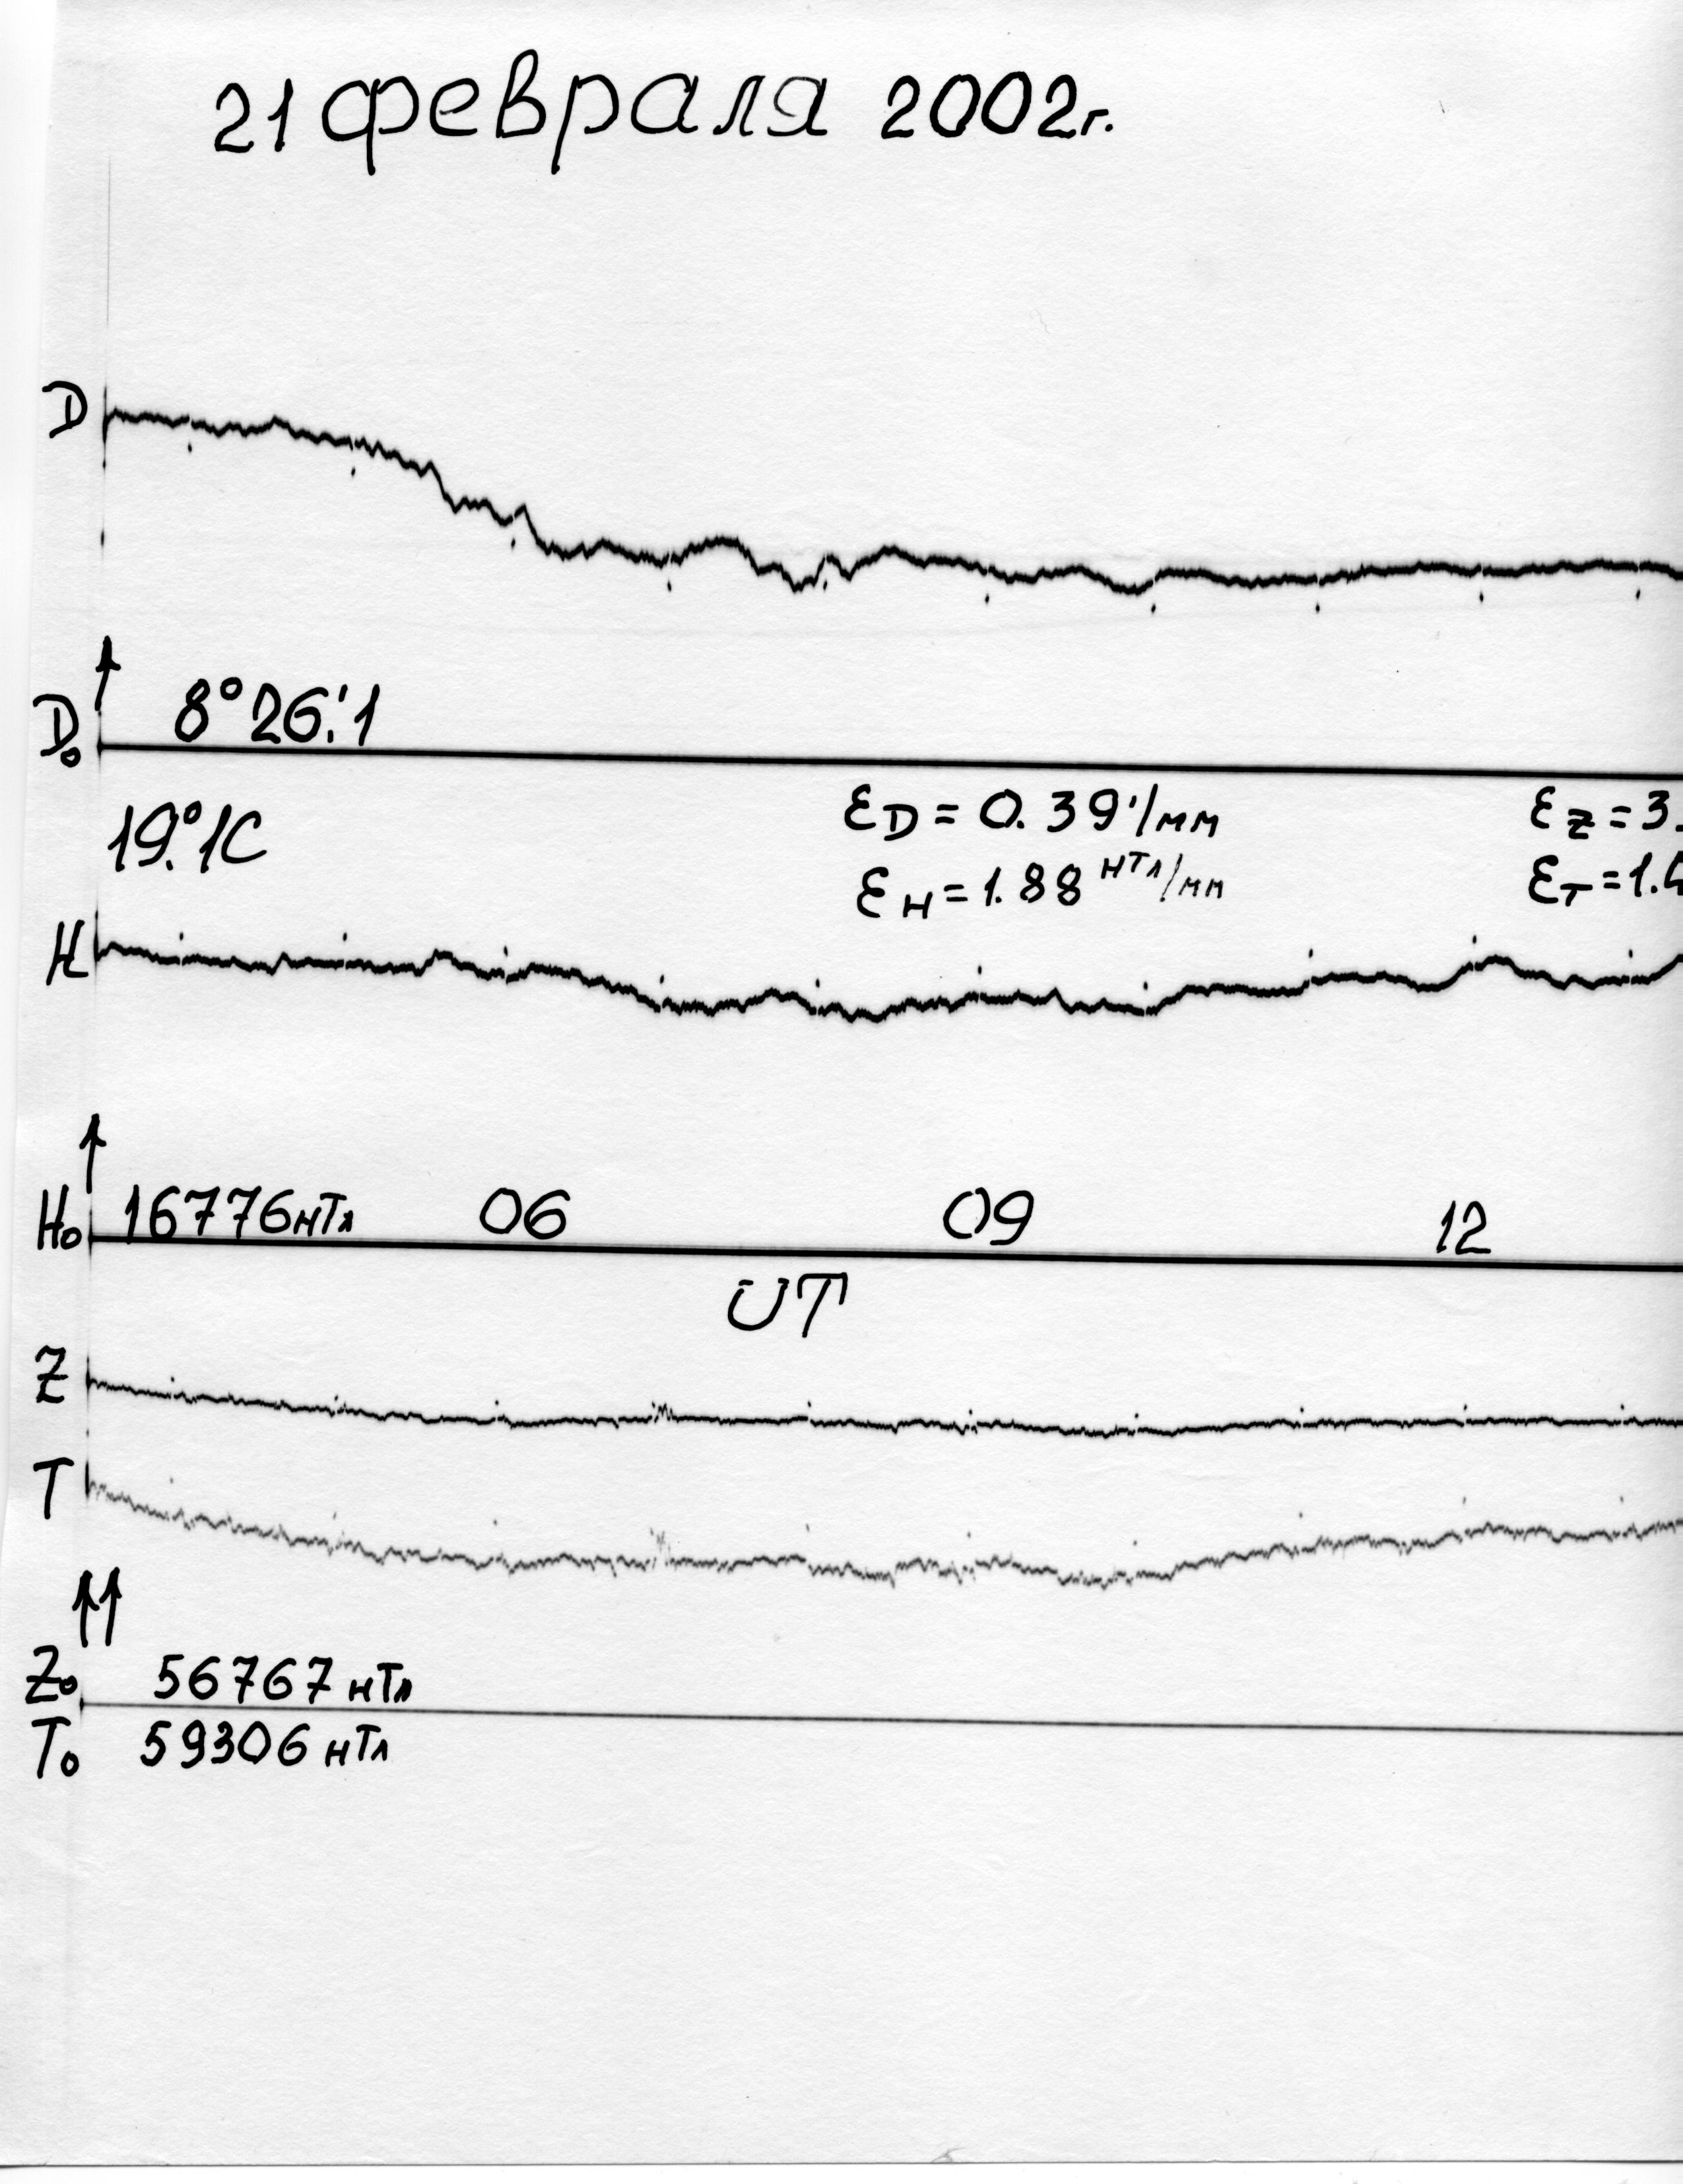 21 февраля 2002г.
D
D₀ 8°26.′1
εD = 0.39′/мм εZ = 3.
19.°1C
εH = 1.88 нТл/мм εT = 1.4
H
H₀ 16776нТл 06 09 12
UT
Z
T
Z₀ 56767 нТл
T₀ 59306 нТл